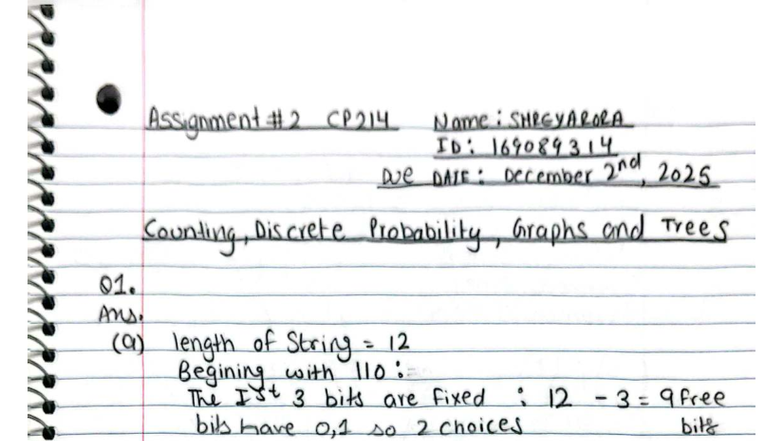 Assignment #2 CP214 Name: SHREYARORA
ID: 169089314
Due DATE: December 2nd, 2025
Counting, Discrete Probability, Graphs and Trees
Q1.
Ans.
(a) length of String = 12
Begining with 110:-
The Ist 3 bits are fixed : 12 - 3 = 9 free
bits have 0,1 so 2 choices bits